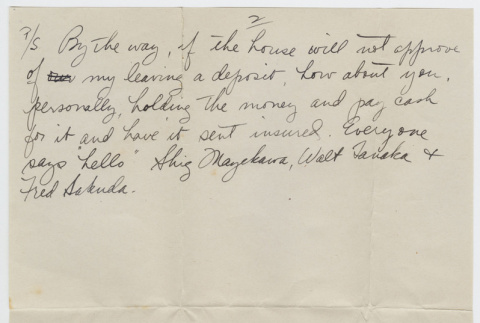 2
P/S By the way, if the house will not approve
of my leaving a deposit, how about you,
personally, holding the money and pay cash
for it and have it sent insured. Everyone
says "hello" Shig Mayekawa, Walt Tanaka &
Fred Sakuda.